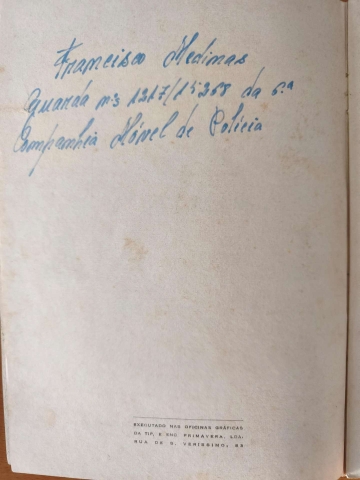 Francisco Medinas
Guarda nº 1217/15268 da 6.ª
Companhia Móvel de Polícia
EXECUTADO NAS OFICINAS GRÁFICAS
DA TIP. E ENC. PRIMAVERA, LDA.
RUA DE S. VERÍSSIMO,